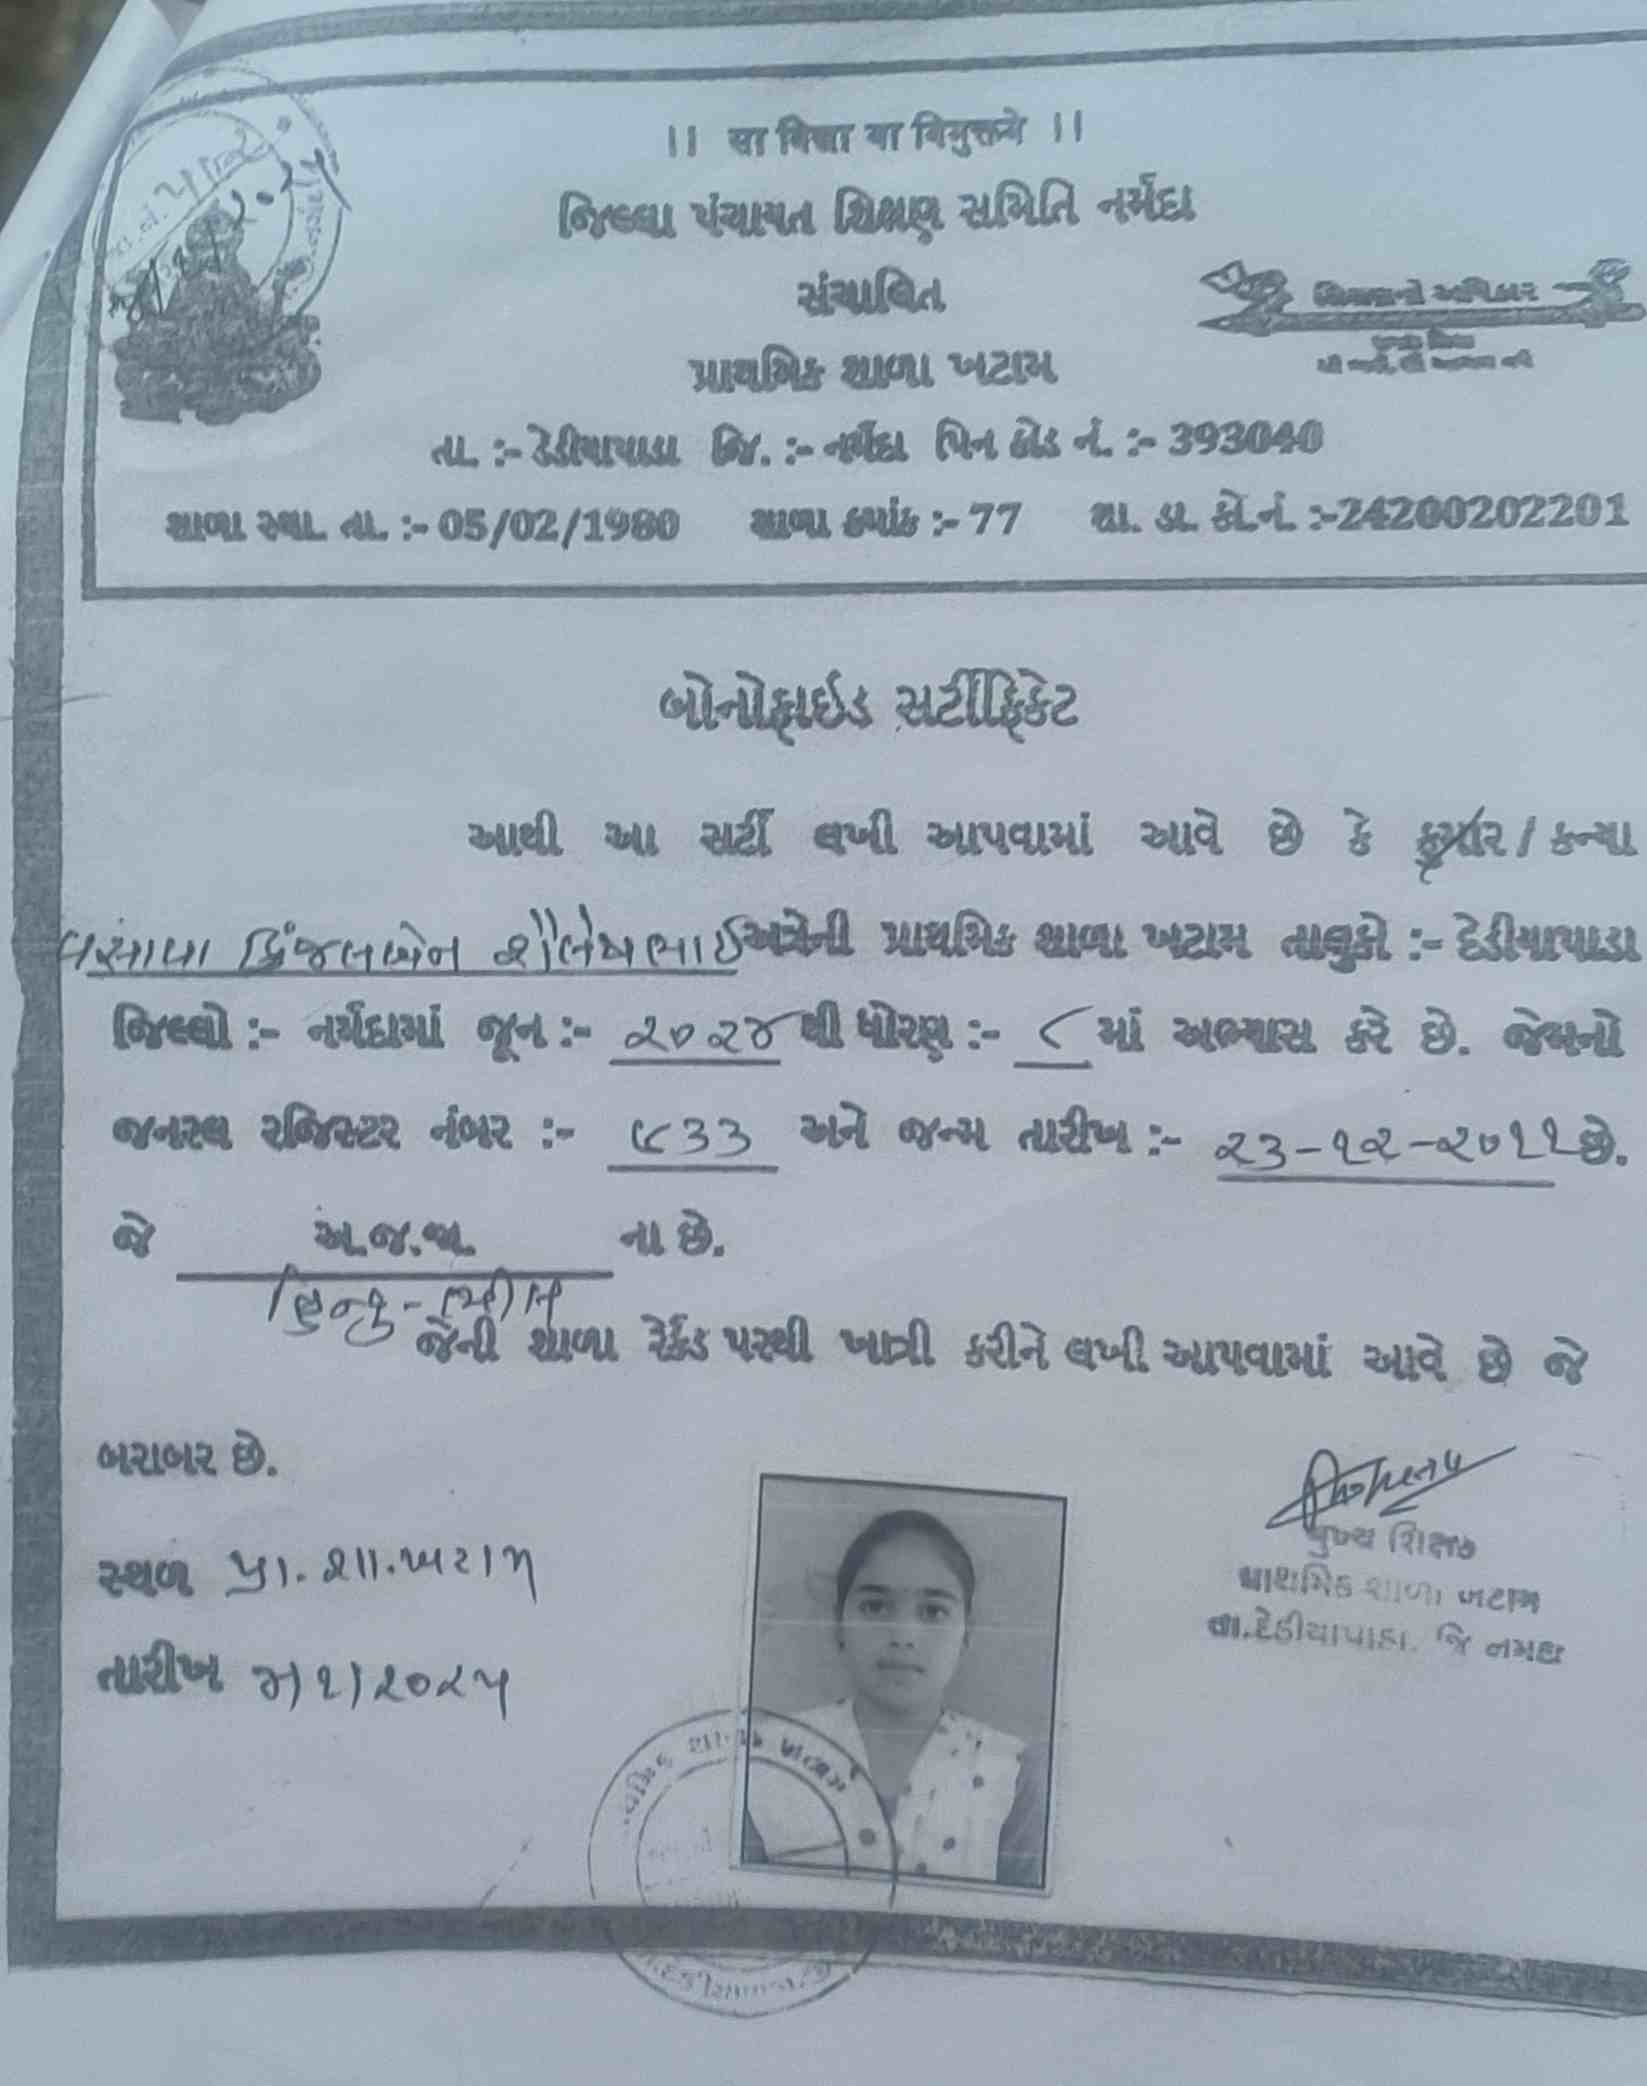 ।। सा विद्या या विमुक्तये ।।
જિલ્લા પંચાયત શિક્ષણ સમિતિ નર્મદા
સંચાલિત
પ્રાથમિક શાળા ખટામ
તા. :- દેડીયાપાડા જિ. :- નર્મદા પિન કોડ નં. :- 393040
શાળા સ્થા. તા. :- 05/02/1980 શાળા ક્રમાંક :- 77 શા. ડા. કો.નં. :-24200202201
બોનોફાઈડ સર્ટીફિકેટ
આથી આ સર્ટી લખી આપવામાં આવે છે કે કુમાર / કન્યા
વસાવા કિંજલબેન શૈલેષભાઈ અત્રેની પ્રાથમિક શાળા ખટામ તાલુકો :- દેડીયાપાડા
જિલ્લો :- નર્મદામાં જૂન :- ૨૦૨૪ થી ધોરણ :- ૮ માં અભ્યાસ કરે છે. જેમનો
જનરલ રજિસ્ટર નંબર :- ૬૩૩ અને જન્મ તારીખ :- ૨૩-૧૨-૨૦૧૧ છે.
જે અ.જ.જા. ના છે.
હિન્દુ - ભીલ
જેની શાળા રેકર્ડ પરથી ખાત્રી કરીને લખી આપવામાં આવે છે જે
બરાબર છે.
સ્થળ પ્રા. શા. ખટામ
મુખ્ય શિક્ષક
પ્રાથમિક શાળા ખટામ
તા.દેડીયાપાડા. જિ નર્મદા
તારીખ /૧/૨૦૨૫